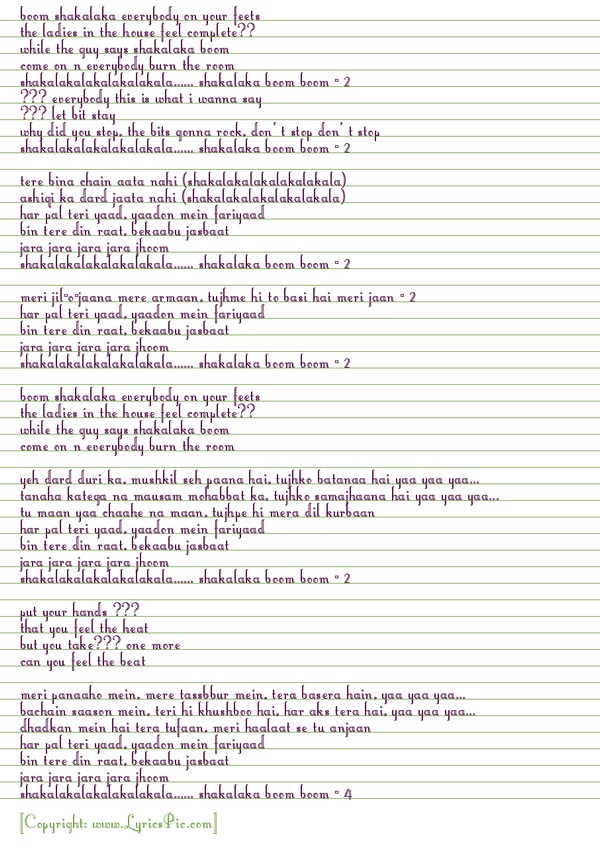 boom shakalaka everybody on your feets
the ladies in the house feel complete??
while the guy says shakalaka boom
come on n everybody burn the room
shakalakalakalakalakala...... shakalaka boom boom - 2
??? everybody this is what i wanna say
??? let bit stay
why did you stop, the bits gonna rock, don't stop don't stop
shakalakalakalakalakala...... shakalaka boom boom - 2
tere bina chain aata nahi (shakalakalakalakalakala)
ashiqi ka dard jaata nahi (shakalakalakalakalakala)
har pal teri yaad, yaadon mein fariyaad
bin tere din raat, bekaabu jasbaat
jara jara jara jara jhoom
shakalakalakalakalakala...... shakalaka boom boom - 2
meri jil-o-jaana mere armaan, tujhme hi to basi hai meri jaan - 2
har pal teri yaad, yaadon mein fariyaad
bin tere din raat, bekaabu jasbaat
jara jara jara jara jhoom
shakalakalakalakalakala...... shakalaka boom boom - 2
boom shakalaka everybody on your feets
the ladies in the house feel complete??
while the guy says shakalaka boom
come on n everybody burn the room
yeh dard duri ka, mushkil seh paana hai, tujhko batanaa hai yaa yaa yaa...
tanaha katega na mausam mohabbat ka, tujhko samajhaana hai yaa yaa yaa...
tu maan yaa chaahe na maan, tujhpe hi mera dil kurbaan
har pal teri yaad, yaadon mein fariyaad
bin tere din raat, bekaabu jasbaat
jara jara jara jara jhoom
shakalakalakalakalakala...... shakalaka boom boom - 2
put your hands ???
that you feel the heat
but you take??? one more
can you feel the beat
meri panaaho mein, mere tassbbur mein, tera basera hain, yaa yaa yaa...
bachain saason mein, teri hi khushboo hai, har aks tera hai, yaa yaa yaa...
dhadkan mein hai tera tufaan, meri haalaat se tu anjaan
har pal teri yaad, yaadon mein fariyaad
bin tere din raat, bekaabu jasbaat
jara jara jara jara jhoom
shakalakalakalakalakala...... shakalaka boom boom - 4
[Copyright: www.LyricsPic.com]